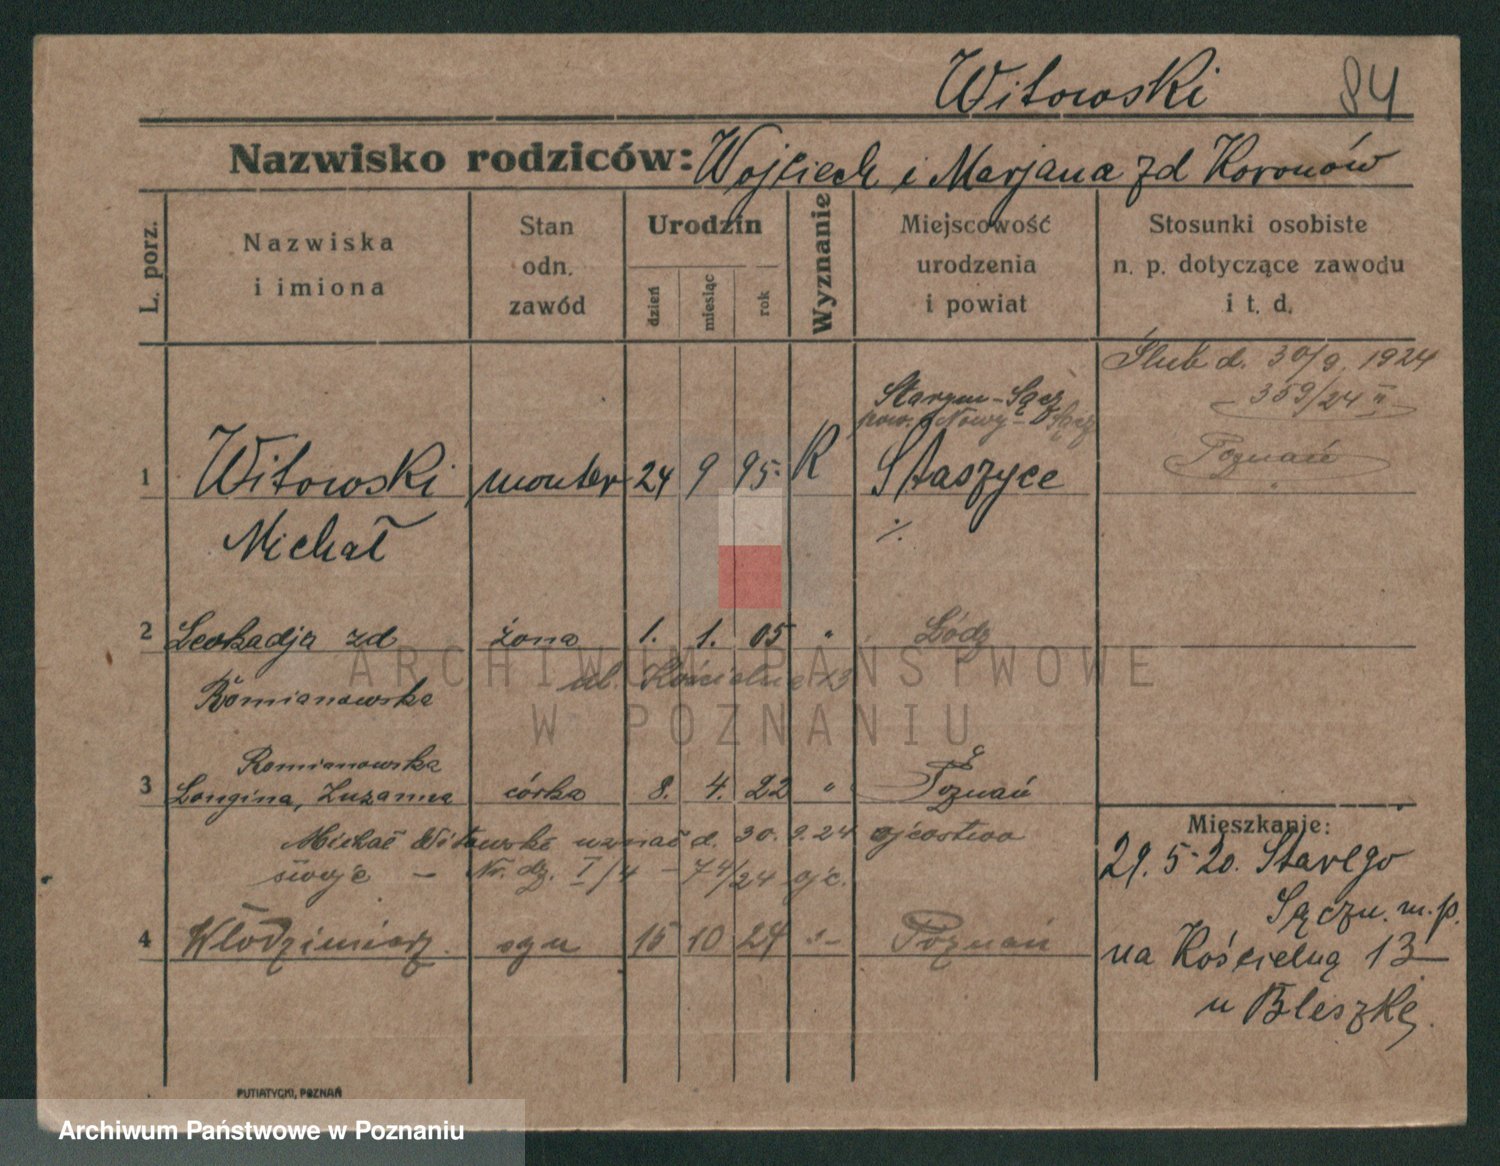 Witowski 84
Nazwisko rodziców: Wojciech i Marjana zd Koronów
L. porz.
Nazwiska
i imiona
Stan
odn.
zawód
Urodzin
dzień
miesiąc
rok
Wyznanie
Miejscowość
urodzenia
i powiat
Stosunki osobiste
n. p. dotyczące zawodu
i t. d.
Ślub d. 30/9. 1924
359/24 II
Poznań
Starym-Sącz
pow. Nowy-Sącz
1 Witowski monter 24 9 95. R Staszyce
Michał
2 Leokadja zd żona 1. 1. 05 " Łódz
Romianowska ul. Kościelna 13
Romianowska
3 Longina, Zuzanna córka 8. 4. 22 " Poznań
Michał Witowski uznał d. 30. 9. 24 ojcostwo
swoje – Nr. dz. I/4 – 74/24 ojc.
4 Włodzimierz syn 15 10 24 -"- Poznań
Mieszkanie:
29. 5-20. Starego
Sączu. m.p.
na Kościelną 13
u Bleszkę.
PUTIATYCKI, POZNAŃ
ARCHIWUM PAŃSTWOWE
W POZNANIU
Archiwum Państwowe w Poznaniu